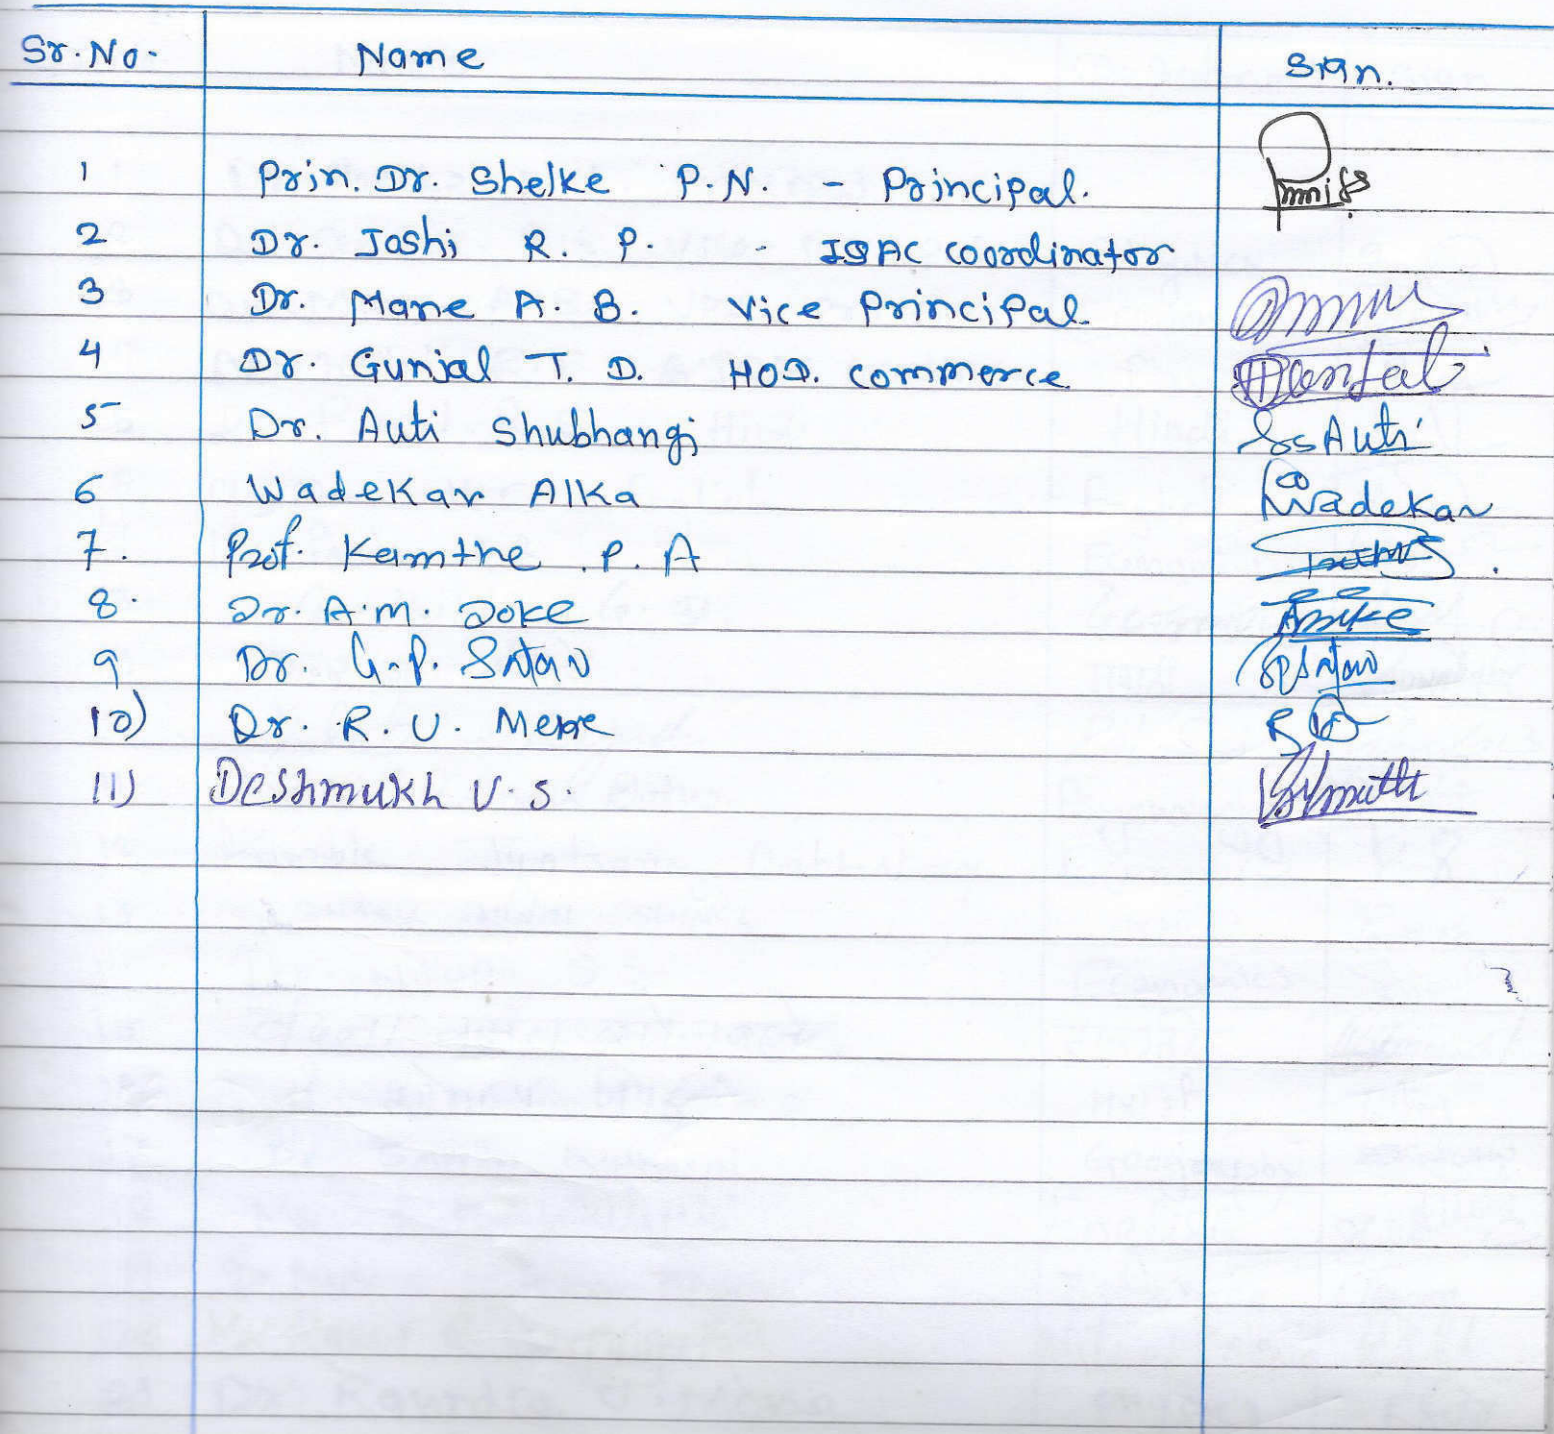 Sr. No. Name Sign.
1 Prin. Dr. Shelke P. N. - Principal.
2 Dr. Joshi R. P. - IQAC Coordinator
3 Dr. Mane A. B. Vice Principal
4 Dr. Gunjal T. D. HOD. Commerce
5 Dr. Auti Shubhangi SsAuti
6 Wadekar Alka Wadekar
7. Prof. Kamthe . P. A
8. Dr. A. M. Doke
9 Dr. G. P. Satav GPSatav
10) Dr. R. U. Mere
11) Deshmukh V. S.